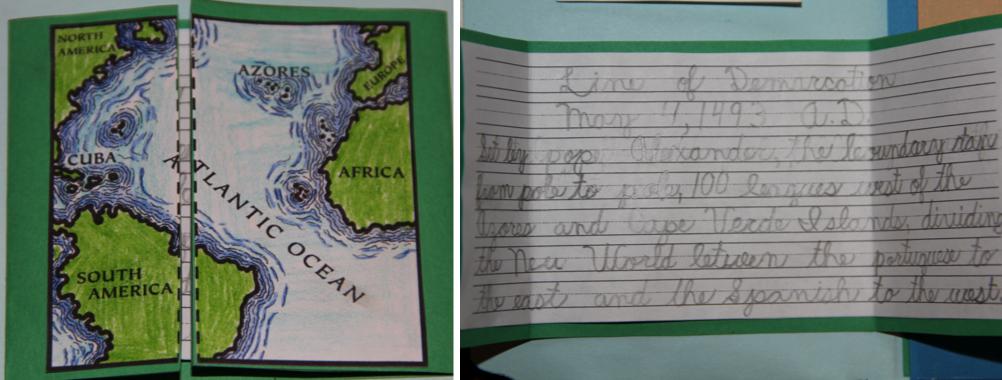 NORTH
AMERICA
AZORES
EUROPE
CUBA
AFRICA
ATLANTIC OCEAN
SOUTH
AMERICA
Line of Demarcation
May 4, 1493 A.D.
Set by pope Alexander, the boundary ran
from pole to pole, 100 leagues west of the
Azores and Cape Verde Islands, dividing
the New World between the portuguese to
the east and the Spanish to the west